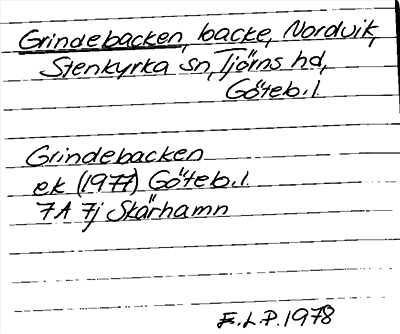 Grindebacken, backe, Nordvik,
Stenkyrka sn, Tjörns hd,
Göteb.l.
Grindebacken
ek (1977) Göteb.l.
7A 7j Skärhamn
E.L.P. 1978